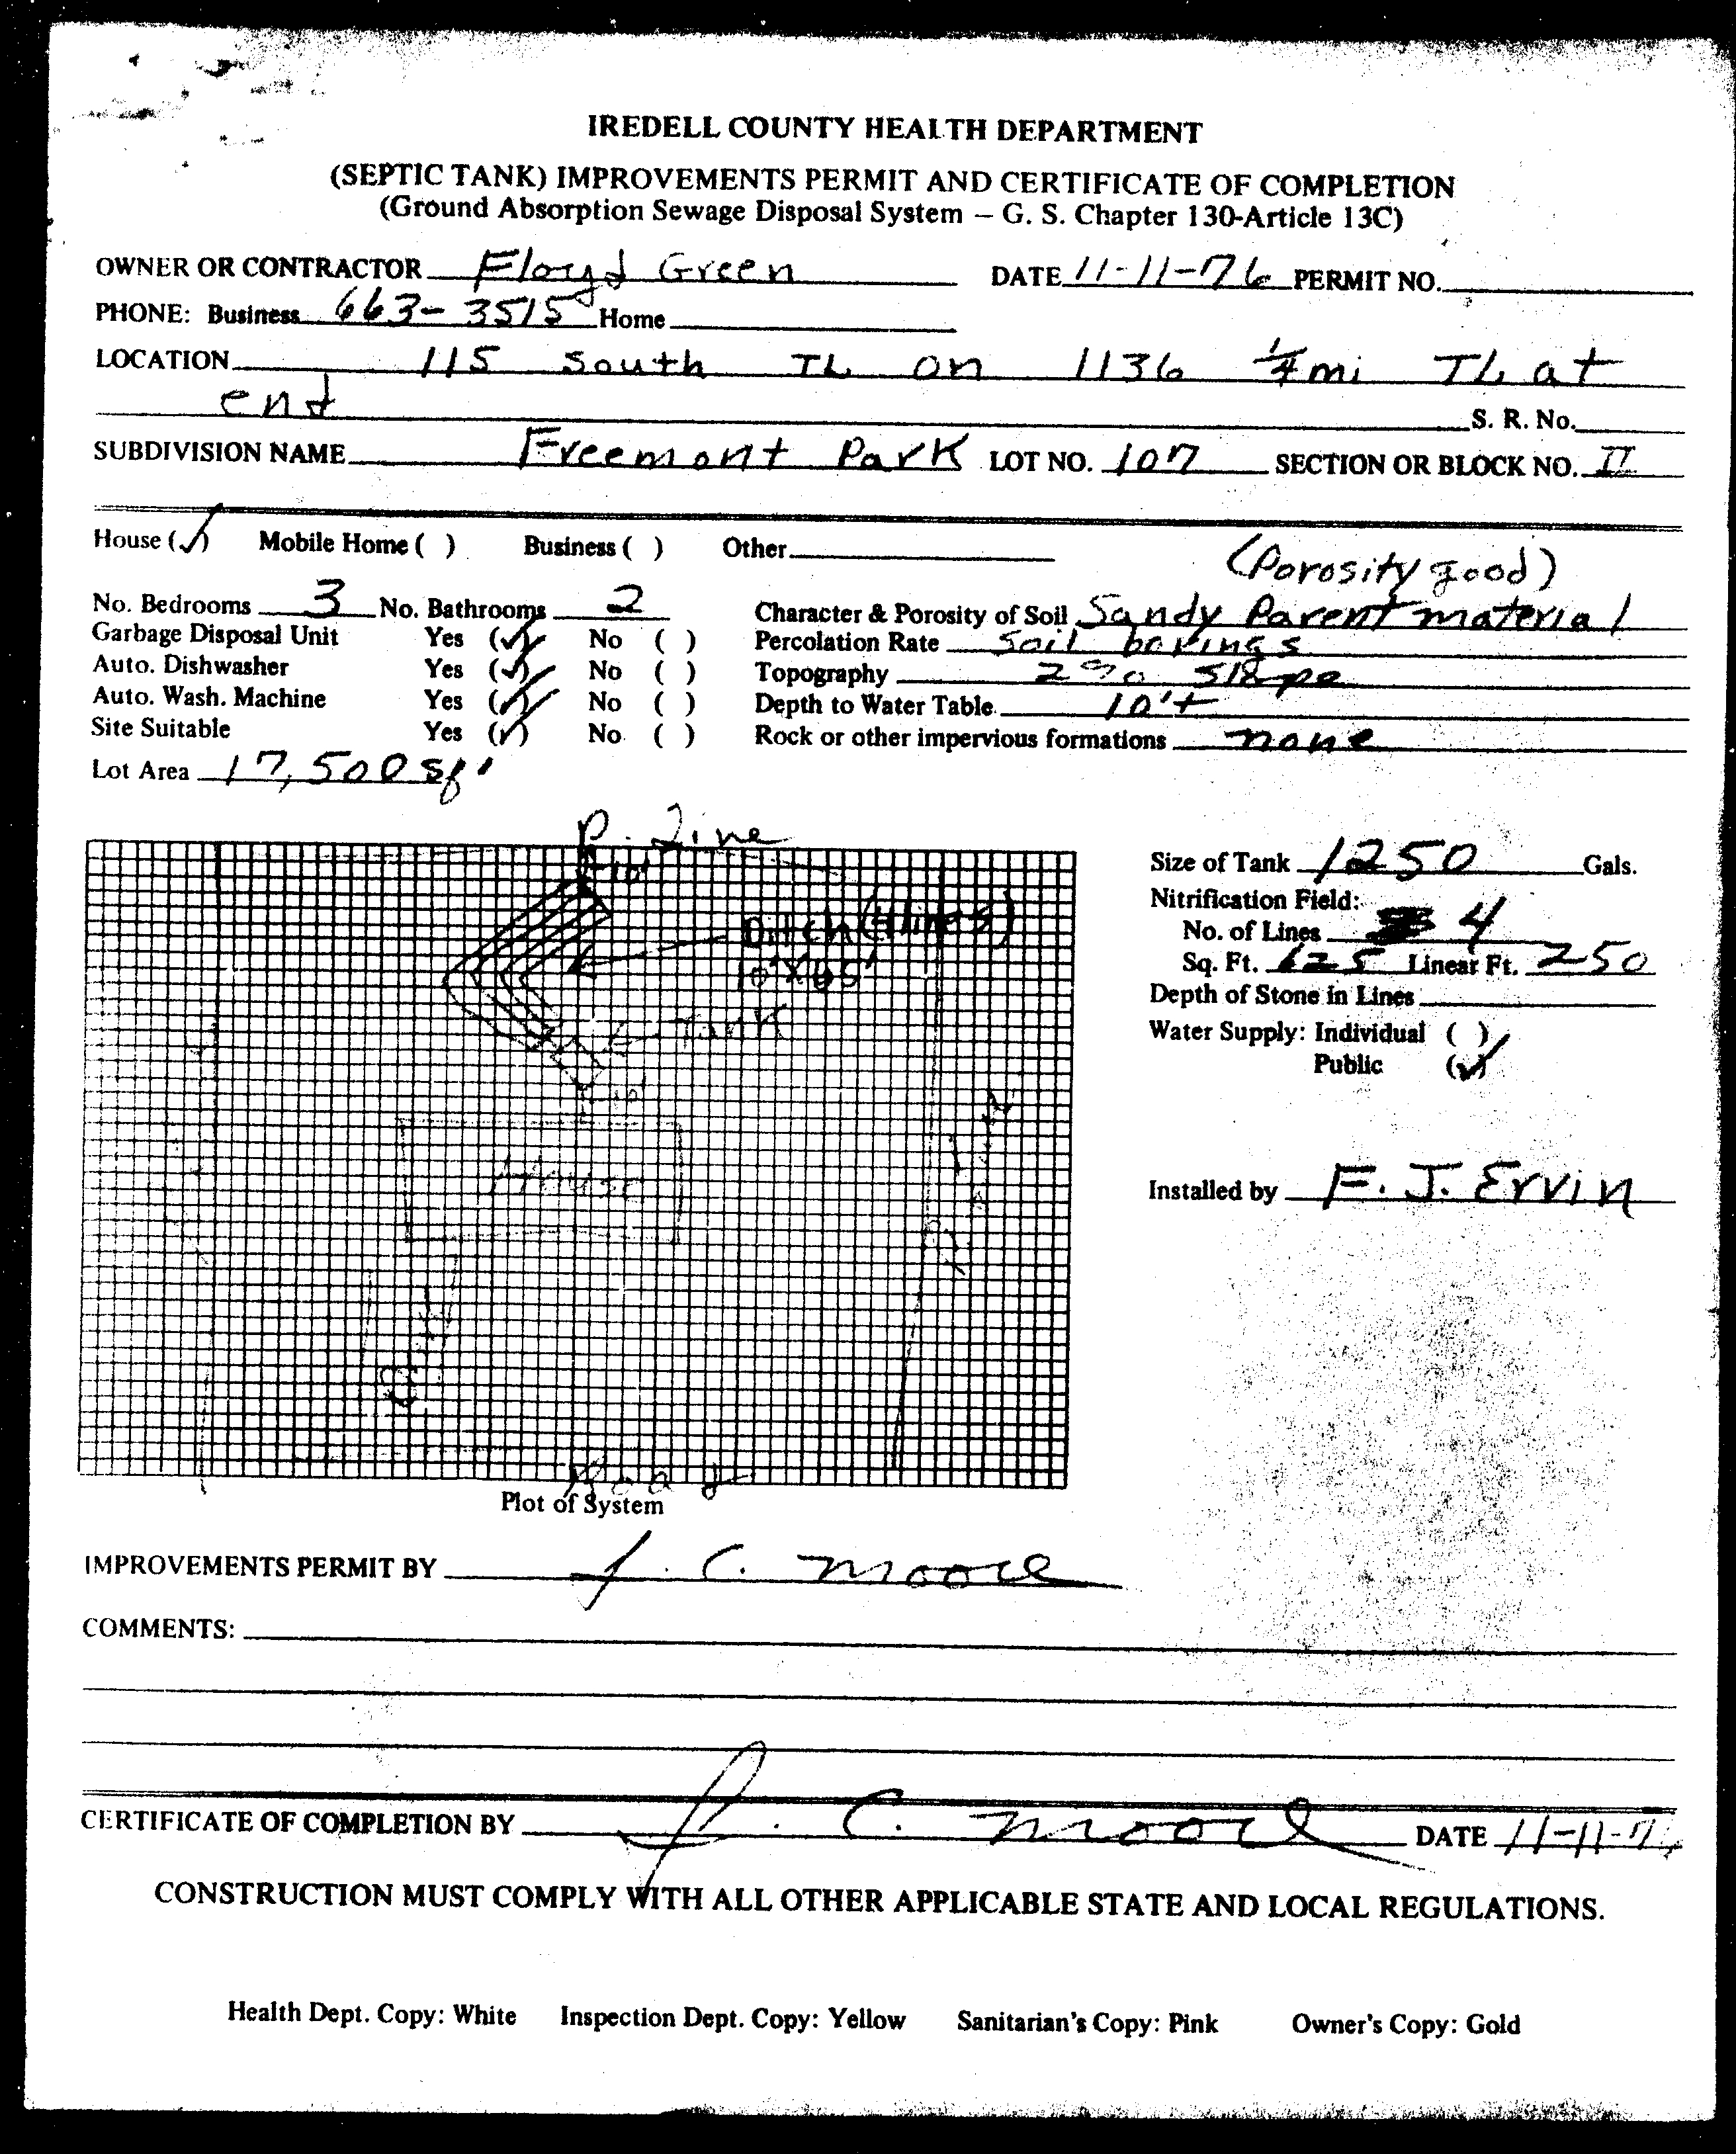 IREDELL COUNTY HEALTH DEPARTMENT
(SEPTIC TANK) IMPROVEMENTS PERMIT AND CERTIFICATE OF COMPLETION
(Ground Absorption Sewage Disposal System – G. S. Chapter 130-Article 13C)
OWNER OR CONTRACTOR Floyd Green DATE 11-11-76 PERMIT NO.
PHONE: Business 663-3515 Home
LOCATION 115 South TL on 1136 1/4 mi TL at
end S. R. No.
SUBDIVISION NAME Freemont Park LOT NO. 107 SECTION OR BLOCK NO. II
House (✓) Mobile Home ( ) Business ( ) Other
(Porosity good)
No. Bedrooms 3 No. Bathrooms 2 Character & Porosity of Soil Sandy Parent material
Garbage Disposal Unit Yes (✓) No ( ) Percolation Rate Soil borings
Auto. Dishwasher Yes (✓) No ( ) Topography 2% slope
Auto. Wash. Machine Yes (✓) No ( ) Depth to Water Table 10'+
Site Suitable Yes (✓) No ( ) Rock or other impervious formations none
Lot Area 17,500 sq'
P. Line
10'
Ditch (4 lines)
10' X 65'
Tank
10'
House
Road
Plot of System
Size of Tank 1250 Gals.
Nitrification Field:
No. of Lines 4
Sq. Ft. 625 Linear Ft. 250
Depth of Stone in Lines
Water Supply: Individual ( )
Public (✓)
Installed by F. J. Ervin
IMPROVEMENTS PERMIT BY J. C. Moore
COMMENTS:
CERTIFICATE OF COMPLETION BY J. C. Moore DATE 11-11-76
CONSTRUCTION MUST COMPLY WITH ALL OTHER APPLICABLE STATE AND LOCAL REGULATIONS.
Health Dept. Copy: White Inspection Dept. Copy: Yellow Sanitarian's Copy: Pink Owner's Copy: Gold